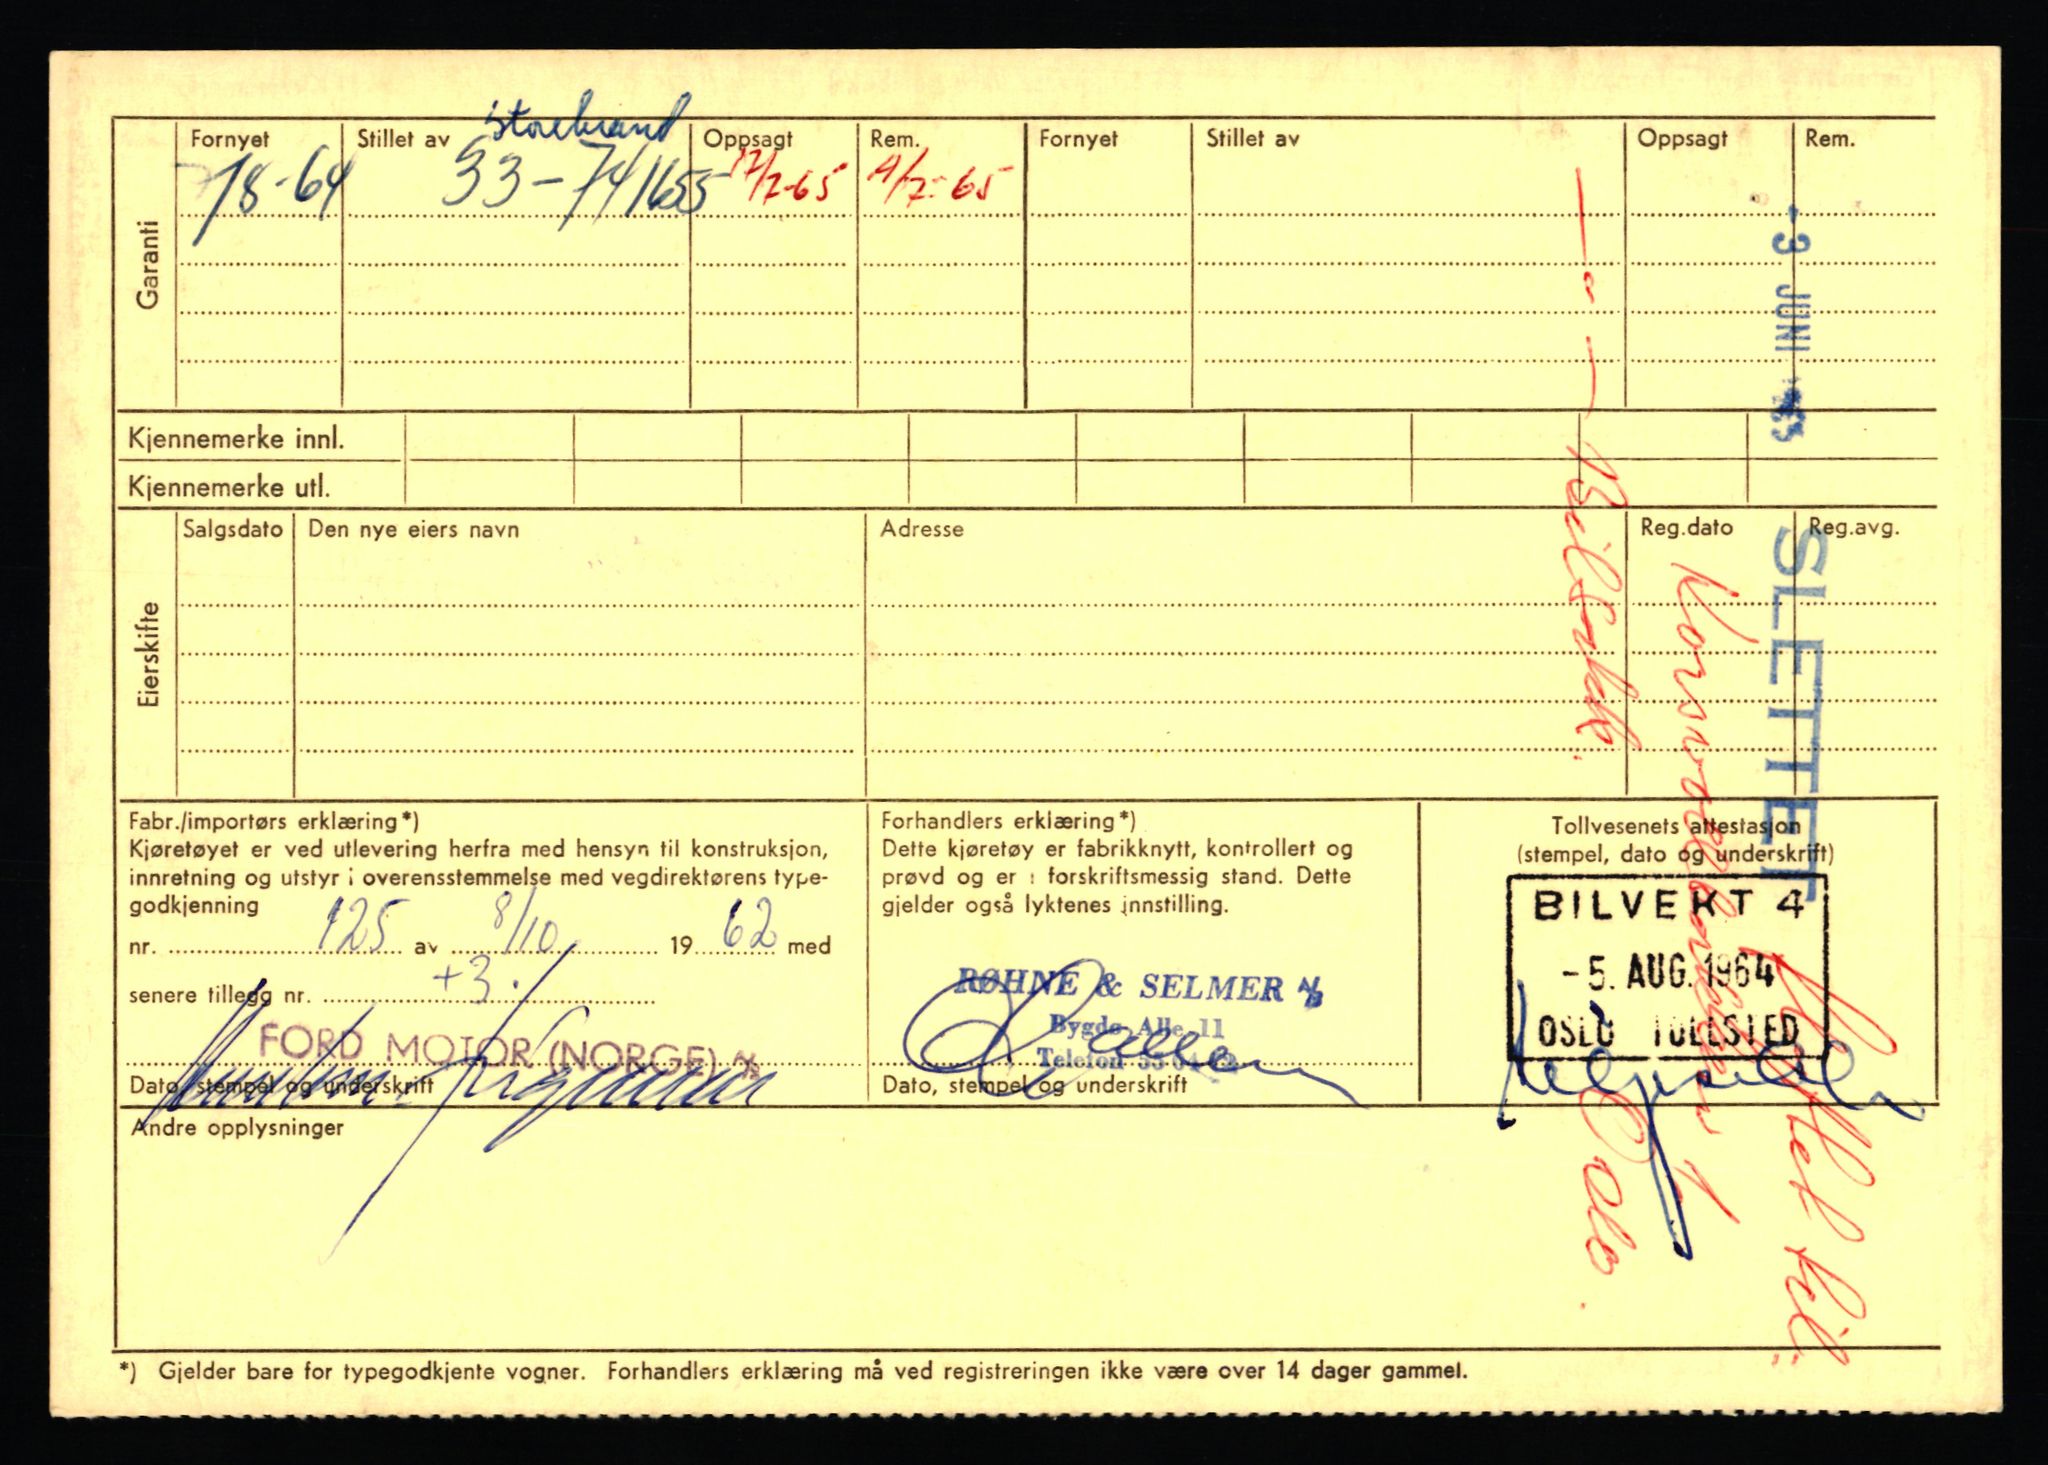 Garanti
Fornyet Stillet av Oppsagt Rem. Fornyet Stillet av Oppsagt Rem.
Storebrand
7/8-64 33-741655 17/2-65 4/2-65
Kjennemerke innl.
Kjennemerke utl.
Eierskifte
Salgsdato Den nye eiers navn Adresse Reg.dato Reg.avg.
Fabr./importørs erklæring*)
Kjøretøyet er ved utlevering herfra med hensyn til konstruksjon,
innretning og utstyr i overensstemmelse med vegdirektørens type-
godkjenning
nr. 125 av 8/10 1962 med
senere tillegg nr. +3.
FORD MOTOR (NORGE) A/S
Dato, stempel og underskrift
Forhandlers erklæring*)
Dette kjøretøy er fabrikknytt, kontrollert og
prøvd og er i forskriftsmessig stand. Dette
gjelder også lyktenes innstilling.
RØHNE & SELMER A/S
Bygdø Alle 11
Telefon
Dato, stempel og underskrift
Tollvesenets attestasjon
(stempel, dato og underskrift)
BILVEKT 4
-5. AUG. 1964
OSLO TOLLSTED
Andre opplysninger
*) Gjelder bare for typegodkjente vogner. Forhandlers erklæring må ved registreringen ikke være over 14 dager gammel.
-3 JUNI
SLETTET
Slettet til:
1
Oslo.